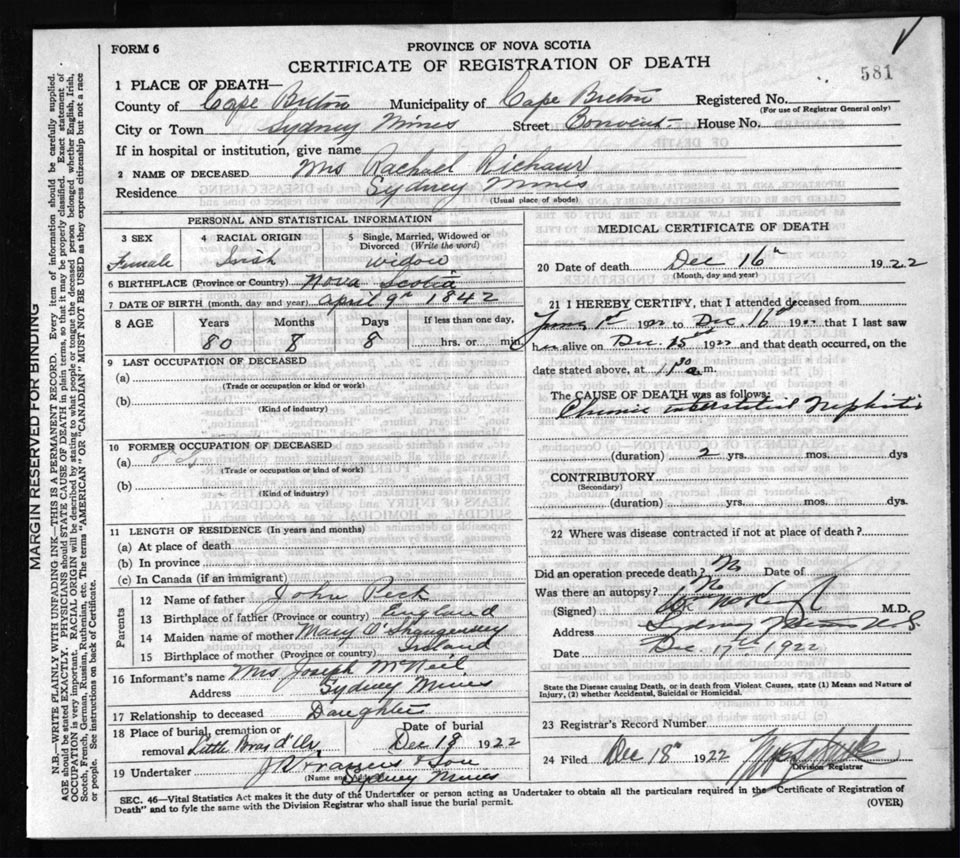 FORM 6
PROVINCE OF NOVA SCOTIA
CERTIFICATE OF REGISTRATION OF DEATH
581
1 PLACE OF DEATH—
County of Cape Breton Municipality of Cape Breton Registered No.
(For use of Registrar General only)
City or Town Sydney Mines Street Convent House No.
If in hospital or institution, give name
2 NAME OF DECEASED Mrs Rachael
Residence Sydney Mines
(Usual place of abode)
PERSONAL AND STATISTICAL INFORMATION
3 SEX 4 RACIAL ORIGIN 5 Single, Married, Widowed or Divorced (Write the word)
Female Irish widow
6 BIRTHPLACE (Province or Country) Nova Scotia
7 DATE OF BIRTH (month, day and year) April 9th 1842
8 AGE Years Months Days If less than one day,
80 8 8 hrs. or min
9 LAST OCCUPATION OF DECEASED
(a)
(Trade or occupation or kind or work)
(b)
(Kind of industry)
10 FORMER OCCUPATION OF DECEASED
(a)
(Trade or occupation or kind or work)
(b)
(Kind of industry)
11 LENGTH OF RESIDENCE (In years and months)
(a) At place of death
(b) In province
(c) In Canada (if an immigrant)
Parents
12 Name of father John Peck
13 Birthplace of father (Province or country) England
14 Maiden name of mother Mary
15 Birthplace of mother (Province or country) Ireland
16 Informant's name Mrs Joseph McNeil
Address Sydney Mines
17 Relationship to deceased Daughter
18 Place of burial, cremation or Date of burial
removal Little Bras d'Or Dec 18 1922
19 Undertaker & Son
(Name and Address) Sydney Mines
MEDICAL CERTIFICATE OF DEATH
20 Date of death Dec 16th 1922
(Month, day and year)
21 I HEREBY CERTIFY, that I attended deceased from
1st 1922 to Dec. 16th 1922 that I last saw
her alive on Dec. 15th 1922 and that death occurred, on the
date stated above, at a m.
The CAUSE OF DEATH was as follows:
Chronic interstitial Nephritis
(duration) 2 yrs. mos. dys
CONTRIBUTORY
(Secondary)
(duration) yrs. mos. dys.
22 Where was disease contracted if not at place of death?
Did an operation precede death? No Date of
Was there an autopsy? No
(Signed) M.D.
Address Sydney Mines N.S.
Date Dec. 17th 1922
State the Disease causing Death, or in death from Violent Causes, state (1) Means and Nature of
Injury, (2) whether Accidental, Suicidal or Homicidal.
23 Registrar's Record Number
24 Filed Dec 18th 1922
Division Registrar
SEC. 46—Vital Statistics Act makes it the duty of the Undertaker or person acting as Undertaker to obtain all the particulars required in the "Certificate of Registration of
Death" and to fyle the same with the Division Registrar who shall issue the burial permit. (OVER)
MARGIN RESERVED FOR BINDING
N.B.—WRITE PLAINLY WITH UNFADING INK—THIS IS A PERMANENT RECORD. Every item of information should be carefully supplied.
AGE should be stated EXACTLY. PHYSICIANS should STATE CAUSE OF DEATH in plain terms, so that it may be properly classified. Exact statement of
OCCUPATION is very important. RACIAL ORIGIN will be described by stating to what people or tongue the deceased person belonged whether English, Irish,
Scotch, French, German, Russian, Ruthenian, etc. The terms "AMERICAN" OR "CANADIAN" MUST NOT BE USED as they express citizenship but not a race
or people. See instructions on back of Certificate.